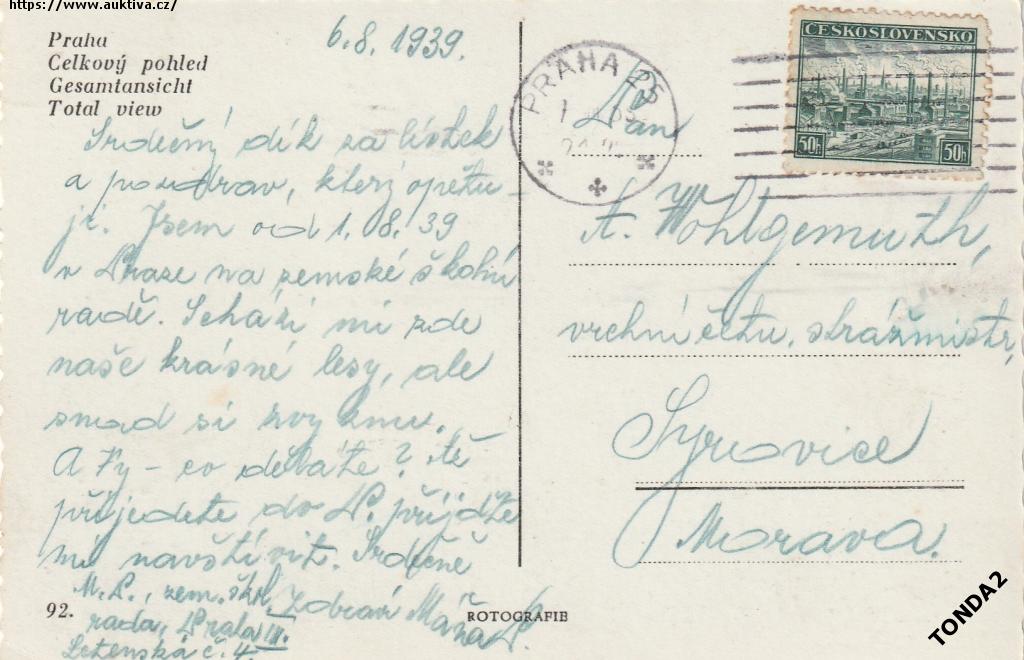 https://www.auktiva.cz/
Praha
Celkový pohled
Gesamtansicht
Total view
6.8.1939.
Srdečný dík za lístek
a pozdrav, který opětu-
ji. Jsem od 1. 8. 39
v Praze na zemské školní
radě. Scházi mi zde
naše krásné lesy, ale
snad si zvyknu.
A Vy - co děláte? Až
přijedete do P. přijďte
mi navštívit. Srdečně
zdraví Máňa P.
M.P., zem. škol.
rada, Praha III.
Letenská č. 4.
92.
ROTOGRAFIE
PRAHA 25
ČESKOSLOVENSKO
50h 50h
Pan
A. Wohlgemuth,
vrchní četn. strážmistr,
Syrovice
Morava.
TONDA2